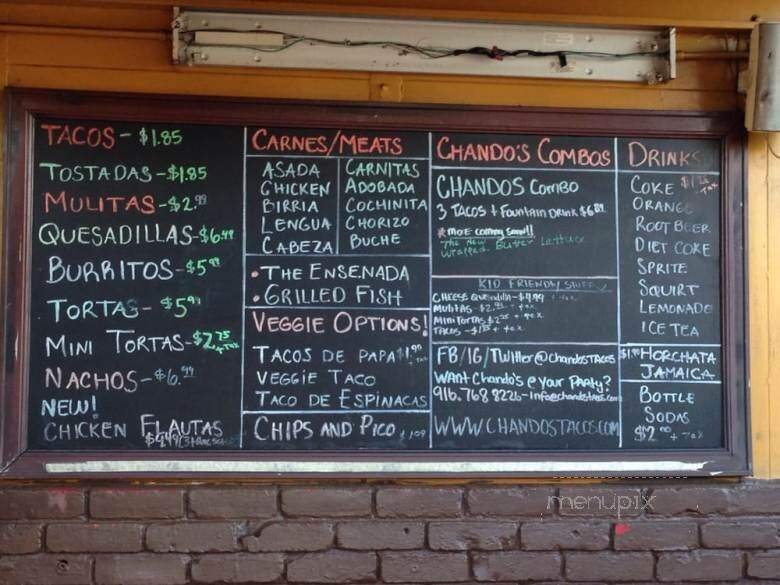 TACOS - $1.85
TOSTADAS - $1.85
MULITAS - $2.99
QUESADILLAS - $6.49
BURRITOS - $5.99
TORTAS - $5.99
MINI TORTAS - $2.75 + TAX
NACHOS - $6.99
NEW!
CHICKEN FLAUTAS
CARNES/MEATS
ASADA
CHICKEN
BIRRIA
LENGUA
CABEZA
CARNITAS
ADOBADA
COCHINITA
CHORIZO
BUCHE
• THE ENSENADA
• GRILLED FISH
VEGGIE OPTIONS!
TACOS DE PAPA $1.99 + tax
VEGGIE TACO
TACO DE ESPINACAS
CHIPS AND PICO
CHANDO'S COMBOS
CHANDOS COMBO
3 TACOS + FOUNTAIN DRINK
MOE coming soon!!
The New
wrapped Butter Lettuce
KID FRIENDLY
CHEESE Quesadilla
MULITAS
MINI TORTAS $2.75 + tax
TACOS - $1.85 + tax
FB/IG/TWitter@chandosTACOS
WANT Chando's @ your PARTY?
916.768.8226 - info@chandostacos.com
WWW.CHANDOSTACOS.COM
DRINKS
COKE
ORANGE
ROOT BEER
DIET COKE
SPRITE
SQUIRT
LEMONADE
ICE TEA
HORCHATA
JAMAICA
BOTTLE
SODAS
$2.00 + tax
menupix